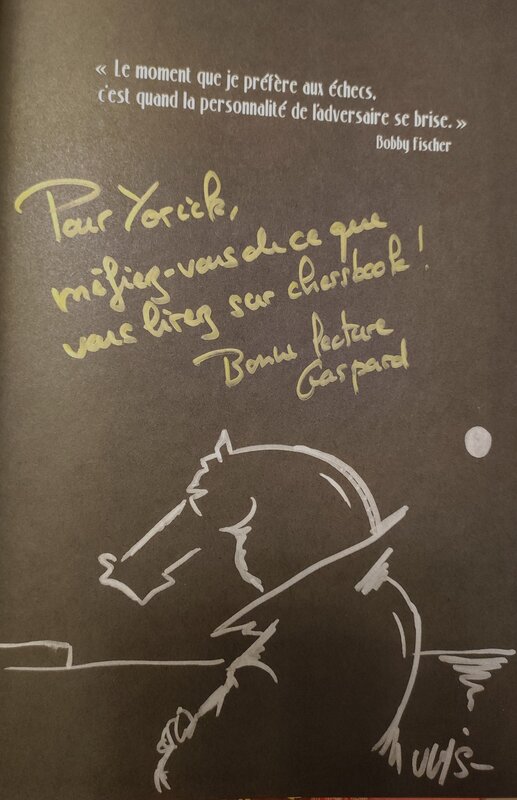 « Le moment que je préfère aux échecs,
c'est quand la personnalité de l'adversaire se brise. »
Bobby Fischer
Pour Yorick,
méfiez-vous de ce que
vous lirez sur chessbook !
Bonne lecture
Gaspard